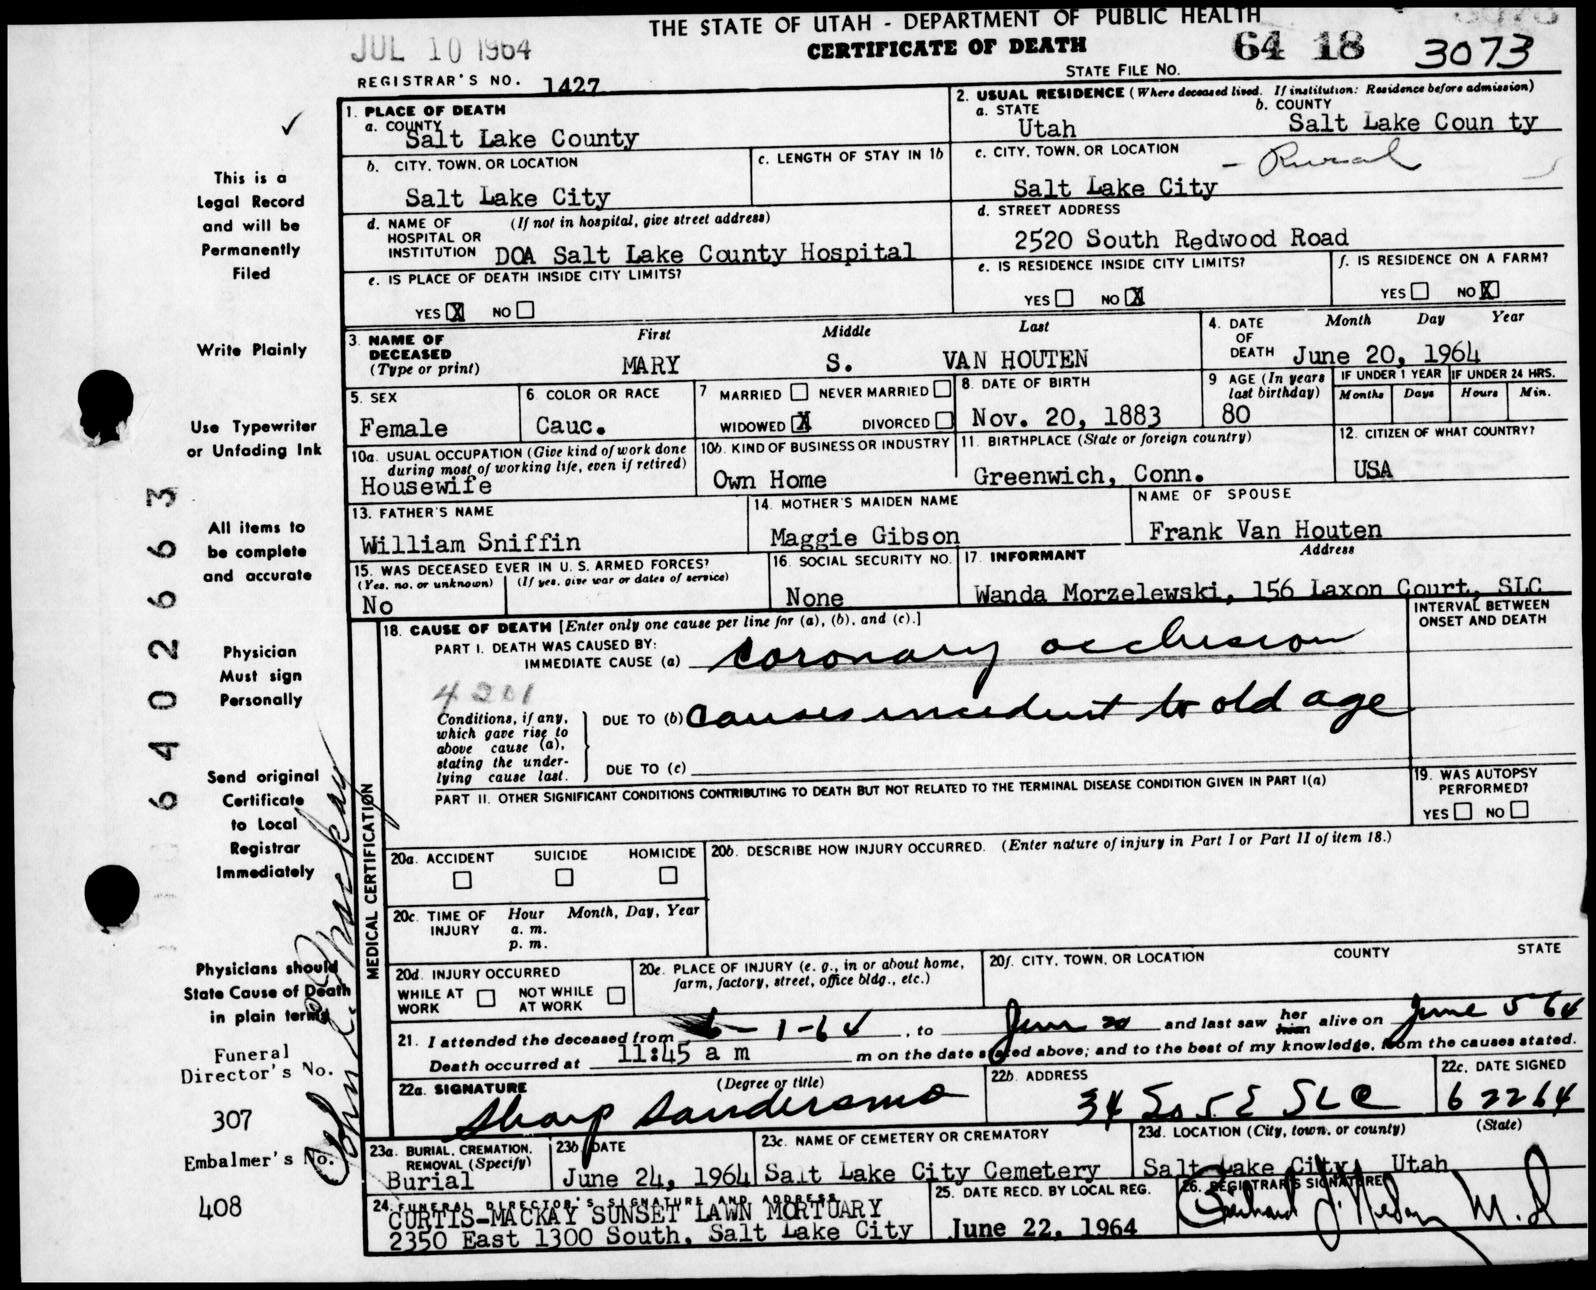 THE STATE OF UTAH - DEPARTMENT OF PUBLIC HEALTH
JUL 10 1964
CERTIFICATE OF DEATH
64 18 3073
STATE FILE NO.
REGISTRAR'S NO. 1427
1. PLACE OF DEATH
a. COUNTY
Salt Lake County
2. USUAL RESIDENCE (Where deceased lived. If institution: Residence before admission)
a. STATE
Utah
b. COUNTY
Salt Lake Coun ty
b. CITY, TOWN, OR LOCATION
Salt Lake City
c. LENGTH OF STAY IN 1b
c. CITY, TOWN, OR LOCATION
Salt Lake City - Rural
d. NAME OF HOSPITAL OR INSTITUTION (If not in hospital, give street address)
DOA Salt Lake County Hospital
d. STREET ADDRESS
2520 South Redwood Road
e. IS PLACE OF DEATH INSIDE CITY LIMITS?
YES X NO
e. IS RESIDENCE INSIDE CITY LIMITS?
YES NO X
f. IS RESIDENCE ON A FARM?
YES NO X
3. NAME OF DECEASED (Type or print)
First Middle Last
MARY S. VAN HOUTEN
4. DATE OF DEATH
Month Day Year
June 20, 1964
5. SEX
Female
6. COLOR OR RACE
Cauc.
7 MARRIED NEVER MARRIED
WIDOWED X DIVORCED
8. DATE OF BIRTH
Nov. 20, 1883
9 AGE (In years last birthday)
80
IF UNDER 1 YEAR
Months Days
IF UNDER 24 HRS.
Hours Min.
10a. USUAL OCCUPATION (Give kind of work done during most of working life, even if retired)
Housewife
10b. KIND OF BUSINESS OR INDUSTRY
Own Home
11. BIRTHPLACE (State or foreign country)
Greenwich, Conn.
12. CITIZEN OF WHAT COUNTRY?
USA
13. FATHER'S NAME
William Sniffin
14. MOTHER'S MAIDEN NAME
Maggie Gibson
NAME OF SPOUSE
Frank Van Houten
15. WAS DECEASED EVER IN U. S. ARMED FORCES?
(Yes, no, or unknown) (If yes, give war or dates of service)
No
16. SOCIAL SECURITY NO.
None
17. INFORMANT Address
Wanda Morzelewski, 156 Laxon Court, SLC
MEDICAL CERTIFICATION
18. CAUSE OF DEATH [Enter only one cause per line for (a), (b), and (c).]
INTERVAL BETWEEN ONSET AND DEATH
PART I. DEATH WAS CAUSED BY:
IMMEDIATE CAUSE (a) coronary occlusion
4201
Conditions, if any, which gave rise to above cause (a), stating the underlying cause last.
DUE TO (b) causes incident to old age
DUE TO (c)
PART II. OTHER SIGNIFICANT CONDITIONS CONTRIBUTING TO DEATH BUT NOT RELATED TO THE TERMINAL DISEASE CONDITION GIVEN IN PART I(a)
19. WAS AUTOPSY PERFORMED?
YES NO
20a. ACCIDENT SUICIDE HOMICIDE
20b. DESCRIBE HOW INJURY OCCURRED. (Enter nature of injury in Part I or Part II of item 18.)
20c. TIME OF INJURY
Hour Month, Day, Year
a. m.
p. m.
20d. INJURY OCCURRED
WHILE AT WORK NOT WHILE AT WORK
20e. PLACE OF INJURY (e. g., in or about home, farm, factory, street, office bldg., etc.)
20f. CITY, TOWN, OR LOCATION COUNTY STATE
21. I attended the deceased from 6-1-64, to June 20 and last saw her him alive on June 5 64
Death occurred at 11:45 a m m on the date stated above; and to the best of my knowledge, from the causes stated.
22a. SIGNATURE (Degree or title)
Sharp Sanders MD
22b. ADDRESS
34 So 5 E SLC
22c. DATE SIGNED
6 22 64
23a. BURIAL, CREMATION, REMOVAL (Specify)
Burial
23b. DATE
June 24, 1964
23c. NAME OF CEMETERY OR CREMATORY
Salt Lake City Cemetery
23d. LOCATION (City, town, or county) (State)
Salt Lake City, Utah
24. FUNERAL DIRECTOR'S SIGNATURE AND ADDRESS
CURTIS-MACKAY SUNSET LAWN MORTUARY
2350 East 1300 South, Salt Lake City
25. DATE RECD. BY LOCAL REG.
June 22, 1964
26. REGISTRAR'S SIGNATURE
M.D
This is a
Legal Record
and will be
Permanently
Filed
Write Plainly
Use Typewriter
or Unfading Ink
All items to
be complete
and accurate
Physician
Must sign
Personally
Send original
Certificate
to Local
Registrar
Immediately
Physicians should
State Cause of Death
in plain terms
Funeral
Director's No.
307
Embalmer's No.
408
64026663